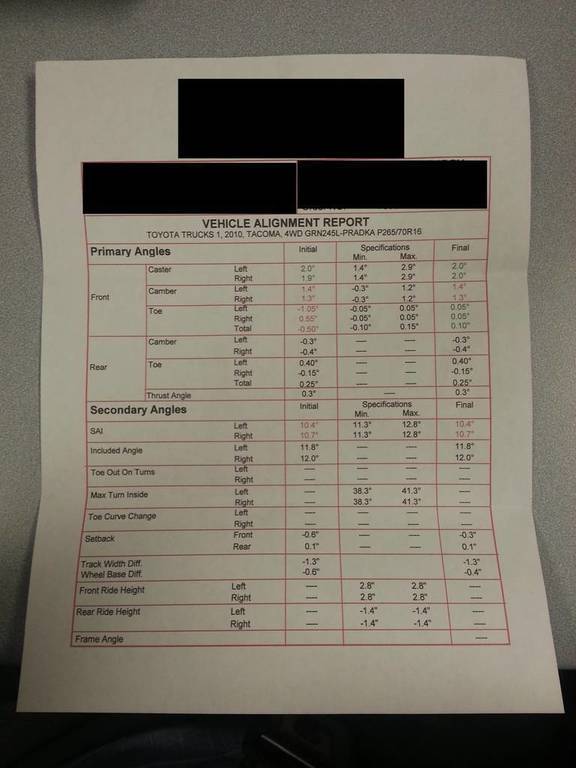 VEHICLE ALIGNMENT REPORT
TOYOTA TRUCKS 1, 2010, TACOMA, 4WD GRN245L-PRADKA P265/70R16
Primary Angles Initial Specifications Min. Max. Final
Front Caster Left 2.0° 1.4° 2.9° 2.0°
Right 1.9° 1.4° 2.9° 2.0°
Camber Left 1.4° -0.3° 1.2° 1.4°
Right 1.3° -0.3° 1.2° 1.3°
Toe Left -1.05° -0.05° 0.05° 0.05°
Right 0.55° -0.05° 0.05° 0.05°
Total -0.50° -0.10° 0.15° 0.10°
Rear Camber Left -0.3° ---- ---- -0.3°
Right -0.4° ---- ---- -0.4°
Toe Left 0.40° ---- ---- 0.40°
Right -0.15° ---- ---- -0.15°
Total 0.25° ---- ---- 0.25°
Thrust Angle 0.3° ---- 0.3°
Secondary Angles Initial Specifications Min. Max. Final
SAI Left 10.4° 11.3° 12.8° 10.4°
Right 10.7° 11.3° 12.8° 10.7°
Included Angle Left 11.8° ---- ---- 11.8°
Right 12.0° ---- ---- 12.0°
Toe Out On Turns Left ---- ---- ---- ----
Right ---- ---- ---- ----
Max Turn Inside Left ---- 38.3° 41.3° ----
Right ---- 38.3° 41.3° ----
Toe Curve Change Left ---- ---- ---- ----
Right ---- ---- ---- ----
Setback Front -0.6" ---- ---- -0.3"
Rear 0.1" ---- ---- 0.1"
Track Width Diff. -1.3" -1.3"
Wheel Base Diff. -0.6" -0.4"
Front Ride Height Left ---- 2.8" 2.8" ----
Right ---- 2.8" 2.8" ----
Rear Ride Height Left ---- -1.4" -1.4" ----
Right ---- -1.4" -1.4" ----
Frame Angle ----